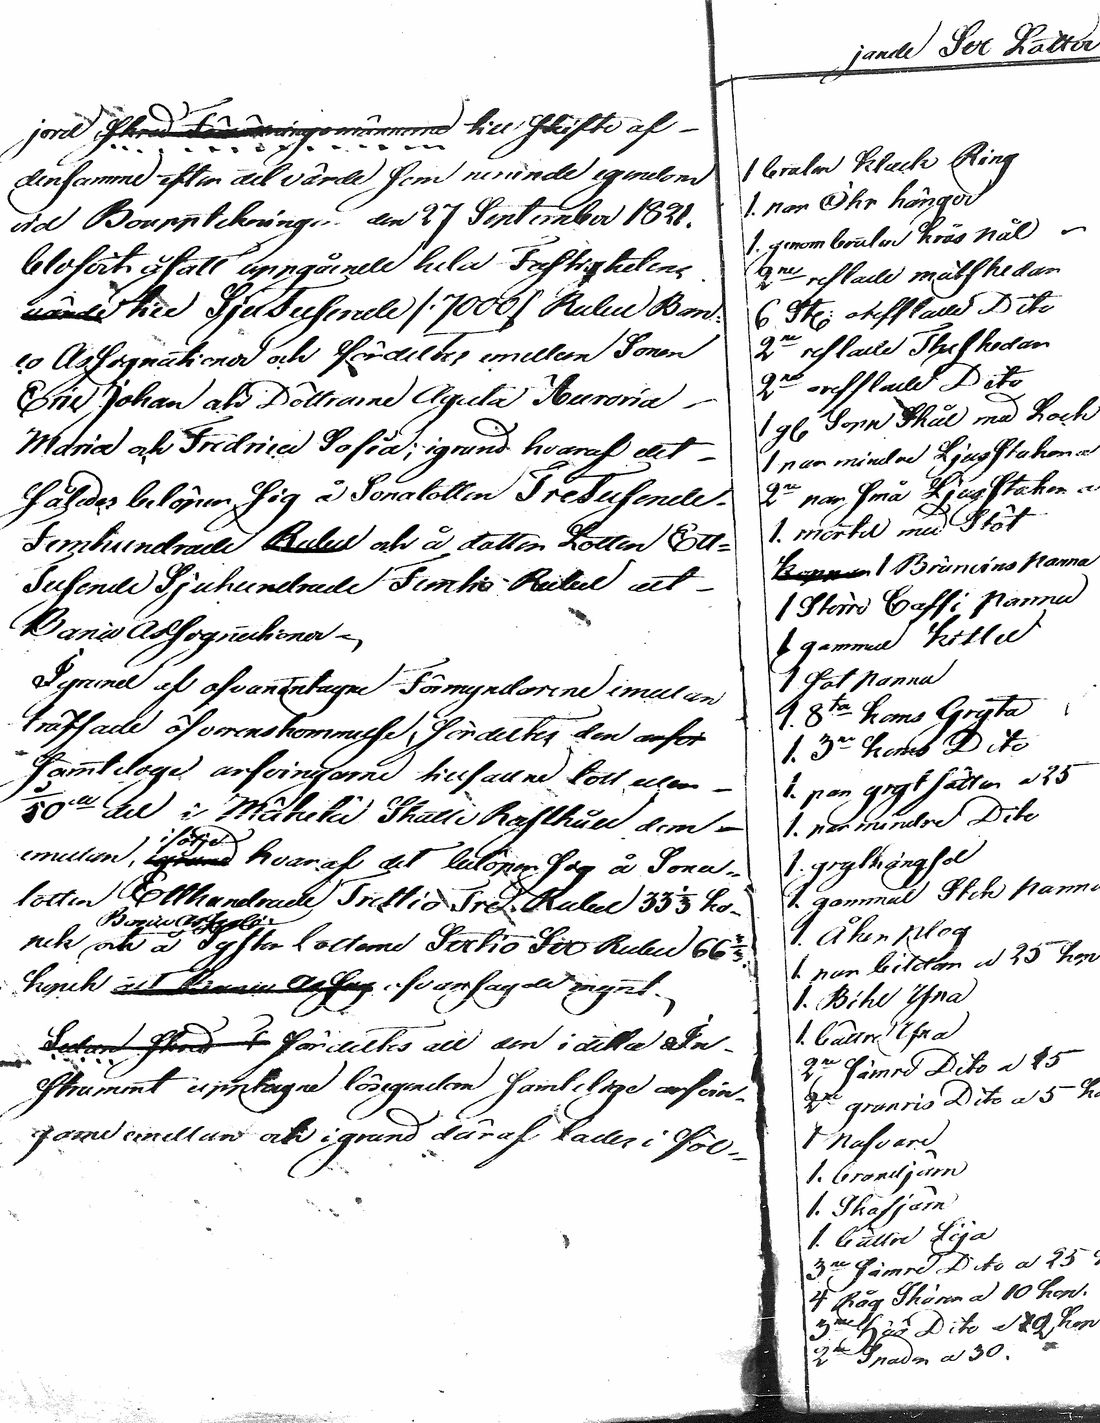 jord skred Förrättningsmännerne till skifte af
densamme efter det värde som nemnde egendom
vid Bouppteckningen den 27 September 1821.
blefvit åsatt uppgående hela Fastighetens
värde till Sju Tusende /:7000/ Rubel Ban-
co Assignationer och fördeltes emellan Sonen
Eric Johan och Döttrarne Agata Auroria
Maria och Fredrica Sofia; igrund hvaraf det
således belöper sig å Sonalotten Tre Tusende
Femhundrade Rubel och å dotter Lotten Ett=
Tusende Sjuhundrade Femtio Rubel allt
Banco Assignationer
I grund af ofvanintagne Förmyndarene emellan
träffade öfverenskommelse, fördeltes den
samtelige arfvingarne tillfallne lott eller
5/50 del i Mäkelä Skatte Rusthåll dem
emellan, i följd igrund hvaraf det belöper sig å Sona-
lotten Etthundrade Trettio Tre Rubel 33 1/3 ko-
pek Banco Assign: och å Syster lotterne Sextio Sex Rubel 66 2/3
kopek allt Banco Assig ofvansagde mynt.
Sedan skred fördeltes all den i detta In-
strument upptagne lösegendom samtelige arfvin-
garne emellan och i grund däraf lades i föl-
jande Sex Lotter
1 Coraler klack Ring
1. par Öhr hängen
1. genombruten krås nål
2ne reflade matskedar
6 St: oreflade Dito
2ne reflade Theskedar
2ne oreflade Dito
1 gl Sopp Skål med Lock
1 par mindre Ljusstakar a
2ne par små Ljusstakar a
1. mortel med Stöt
Koppar 1 Bränvins panna
1 Större Caffi panna
1 gammal kittel
1 fat panna
1. 8ta kans Gryta
1. 3ne kans Dito
1. par grytfötter a 25
1. par mindre Dito
1. grythängsel
1. gammal Stek panna
1. Åker plog
1. par bildar a 25 kop
1. Bihl Yxa
1 bättre Yxa
2ne sämre Dito a 15
2ne granris Dito a 5 ko
1 Nafvare
1. brandjärn
1. Skafjärn
1. bättre Lija
3ne sämre Dito a 25
4 Råg Skäror a 10 kop.
3ne Dito a 12 kop
2ne Spadar a 30.